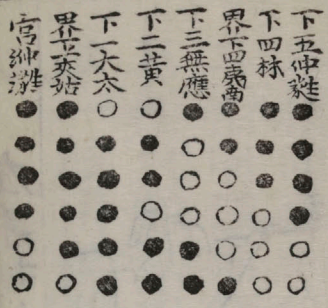 下五仲蕤
下四林
界下四夷南
下三無應
下二黄
下一大太
界夾姑
宮仲蕤